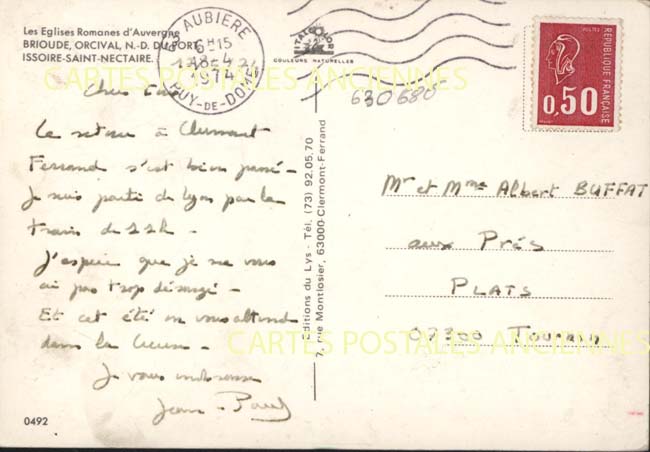 Les Eglises Romanes d'Auvergne
BRIOUDE, ORCIVAL, N.-D. DU PORT
ISSOIRE-SAINT-NECTAIRE.
AUBIERE
6H15
18-4
1974
PUY-DE-DOME
COULEURS NATURELLES
POSTES
REPUBLIQUE FRANÇAISE
0,50
630680
CARTES POSTALES ANCIENNES
Le retour à Clermont
Ferrand s'est bien passé -
Je suis parti de Lyon par le
train de 22h -
J'espère que je ne vous
ai pas trop dérangé -
Et cet été on vous attend
dans la Creuse -
Je vous embrasse
Jean-Paul
Editions du Lys - Tél. (73) 92.05.70
7, rue Montlosier, 63000-Clermont-Ferrand
Mr et Mme Albert BUFFAT
aux Prés
PLATS
07300 Tournon
CARTES POSTALES ANCIENNES
0492